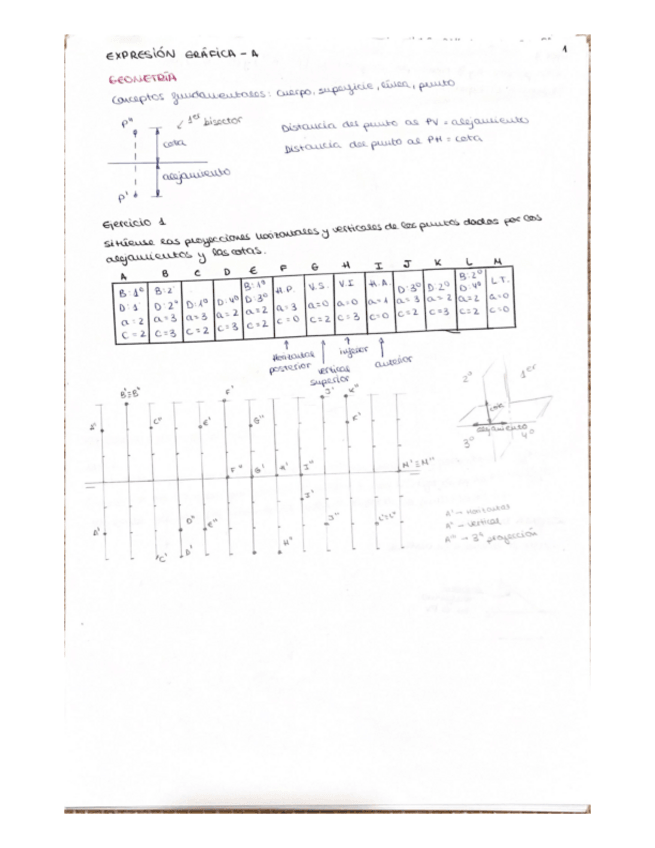 EXPRESIÓN GRÁFICA - A
1
GEOMETRÍA
Conceptos fundamentales: cuerpo, superficie, línea, punto
P"
1er bisector
cota
alejamiento
P'
Distancia del punto al PV = alejamiento
Distancia del punto al PH = cota
Ejercicio 1
Sitúense las proyecciones horizontales y verticales de los puntos dados por los
alejamientos y las cotas.
A B C D E F G H I J K L M
B:1º B:2º B:1º H.P. V.S. V.I H.A. B:2º L.T.
D:1 D:2º D:1º D:4º D:3º D:3º D:2º D:4º
a=2 a=3 a=3 a=2 a=2 a=3 a=0 a=0 a=1 a=3 a=2 a=2 a=0
c=2 c=3 c=2 c=3 c=2 c=0 c=2 c=3 c=0 c=2 c=3 c=2 c=0
Horizontal
posterior
vertical
superior
inferior
anterior
2º
1er
cota
alejamiento
3º
4º
B'≡B"
F'
J'
K"
C"
E'
G"
K'
F"
G'
H'
I"
M'≡M"
I'
D"
E"
J"
L'≡L"
C'
D'
H"
A' → Horizontal
→ vertical
→ 3ª proyección